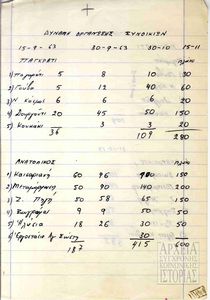 ΔΥΝΑΜΗ ΟΡΓΑΝΩΣΕΩΣ ΣΥΝΟΙΚΙΩΝ
15-9-63 30-9-63 30-10 15-11
ΠΑΓΚΡΑΤΙ
1) 5 8 10 30
2) Γούβα 5 12 40 60
3) Ν Κόσμος 6 6 6 20
4) Δουργούτι 20 45 50 150
5) Κουκάκι 3 3 20
36 109 280
ΑΝΑΤΟΛΙΚΟΣ
1) Καισαριανή 60 96 150
2) 50 90 140 200
3) Ζ. Πηγή 50 58 65 150
4) Ζωγράφου 9 9 50 50
5) 18 26 30 50
30
187 415 600
ΑΡΧΕΙΑ
ΣΥΓΧΡΟΝΗΣ
ΚΟΙΝΩΝΙΚΗΣ
ΙΣΤΟΡΙΑΣ